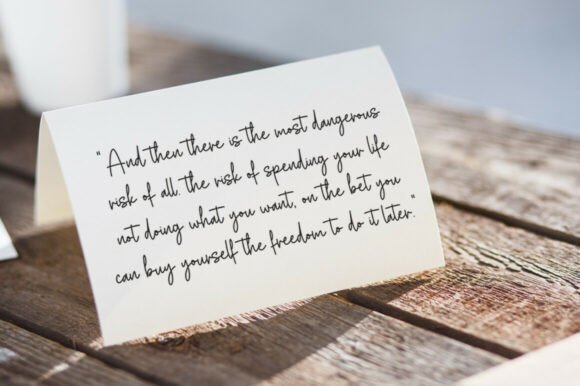 "And then there is the most dangerous
risk of all, the risk of spending your life
not doing what you want, on the bet you
can buy yourself the freedom to do it later."